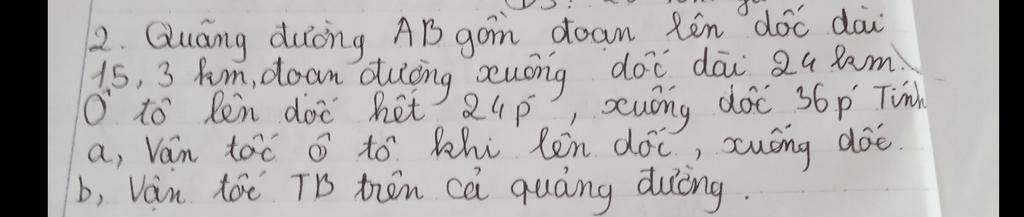 2. Quãng đường AB gồm đoạn lên dốc dài
15,3 km, đoạn đường xuống dốc dài 24 km.
Ô tô lên dốc hết 24p, xuống dốc 36p Tính
a, Vận tốc ô tô khi lên dốc, xuống dốc.
b, Vận tốc TB trên cả quảng đường.